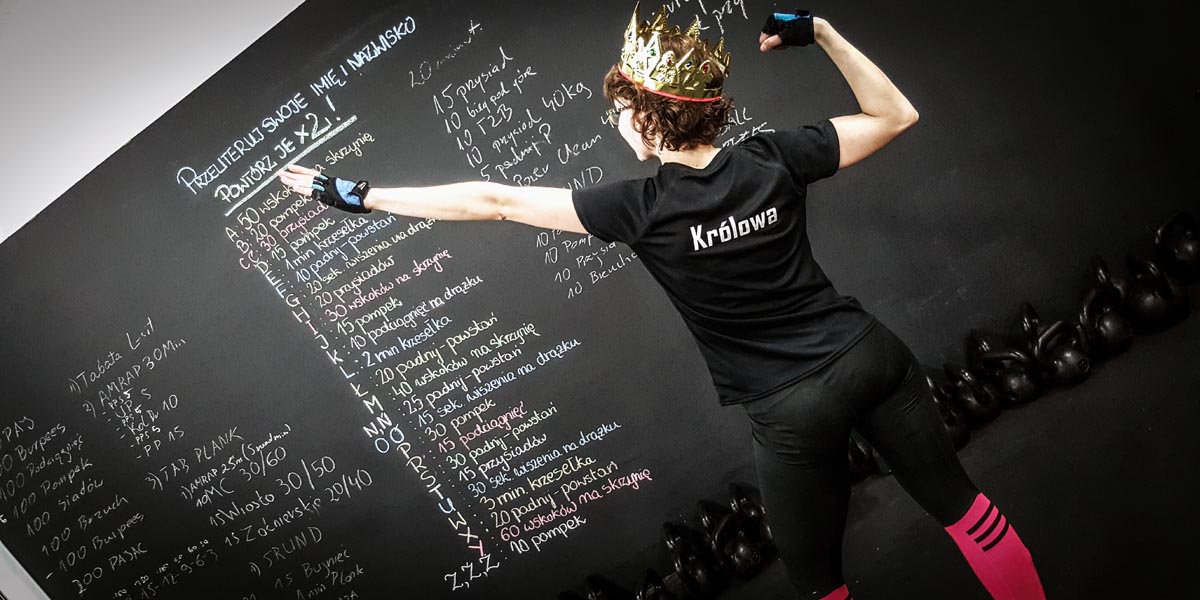 PRZELITERUJ SWOJE IMIĘ I NAZWISKO
POWTÓRZ JE x2!
A: 50 wskoków na skrzynię
B: 20 pompek
C,Ć: 30 przysiadów
D: 15 pompek
E: 1 min krzesełka
F: 10 padny powstań
G: 20 sek. wiszenia na drążku
H: 20 przysiadów
I: 30 wskoków na skrzynię
J: 15 pompek
K: 10 podciągnięć na drążku
L: 2 min krzesełka
Ł: 20 padny-powstań
M: 40 wskoków na skrzynię
N,Ń: 25 padny-powstań
O,Ó: 15 sek. wiszenia na drążku
P: 30 pompek
R: 15 podciągnięć
S: 30 padny-powstań
T: 15 przysiadów
U: 30 sek wiszenia na drążku
W: 3 min. krzesełka
X: 20 padny-powstań
Y: 60 wskoków na skrzynię
Z,Ż,Ź: 10 pompek
15 przysiad
10 bieg pod górę
10 T2B
10 przysiad 40kg
5 padnij P
Clean
Królowa
1) Tabata
2) AMRAP 30Min.
- PP 5
3) TAB PLANK
10MC 30/60
15 Wiosło 30/50
15 Żołnierskie 20/40
5 RUND
15 Burpees
1 min Plank
100 Burpees
100 Podciągnięć
100 Pompek
100 siadów
100 Brzuch
100 Burpees
200 PAJAC